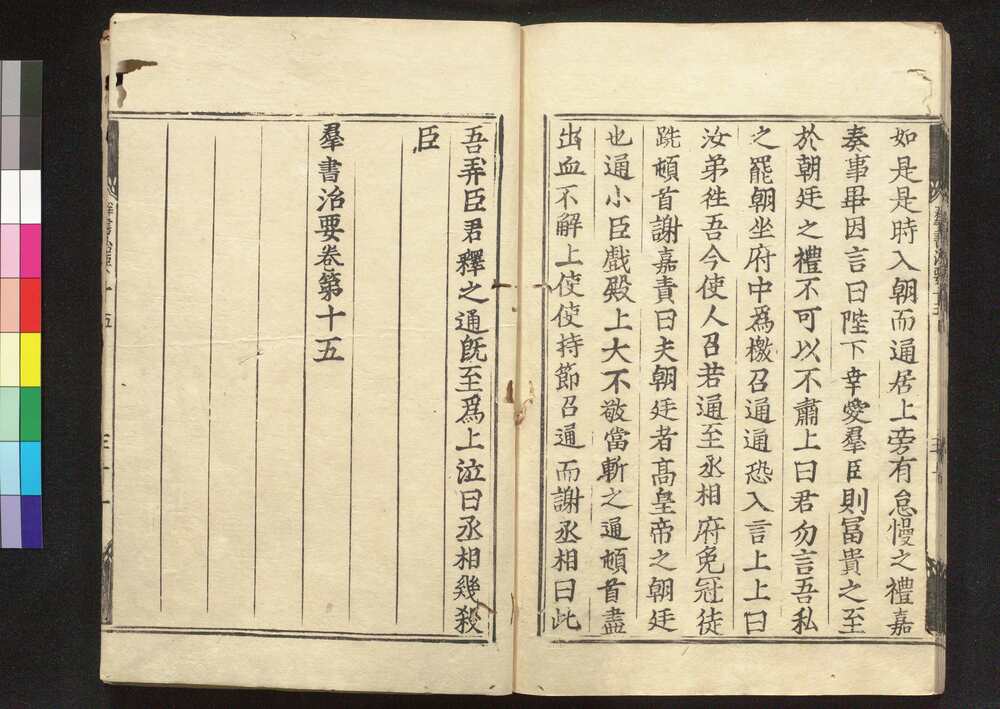 如是是時入朝而通居上旁有怠慢之禮嘉
奏事畢因言曰陛下幸愛羣臣則冨貴之至
於朝廷之禮不可以不肅上曰君勿言吾私
之罷朝坐府中爲檄召通通恐入言上上曰
汝弟徃吾今使人召若通至丞相府免冠徒
跣頓首謝嘉責曰夫朝廷者髙皇帝之朝廷
也通小臣戲殿上大不敬當斬之通頓首盡
出血不解上使使持節召通而謝丞相曰此
吾弄臣君釋之通旣至爲上泣曰丞相幾殺
臣
羣書治要卷第十五